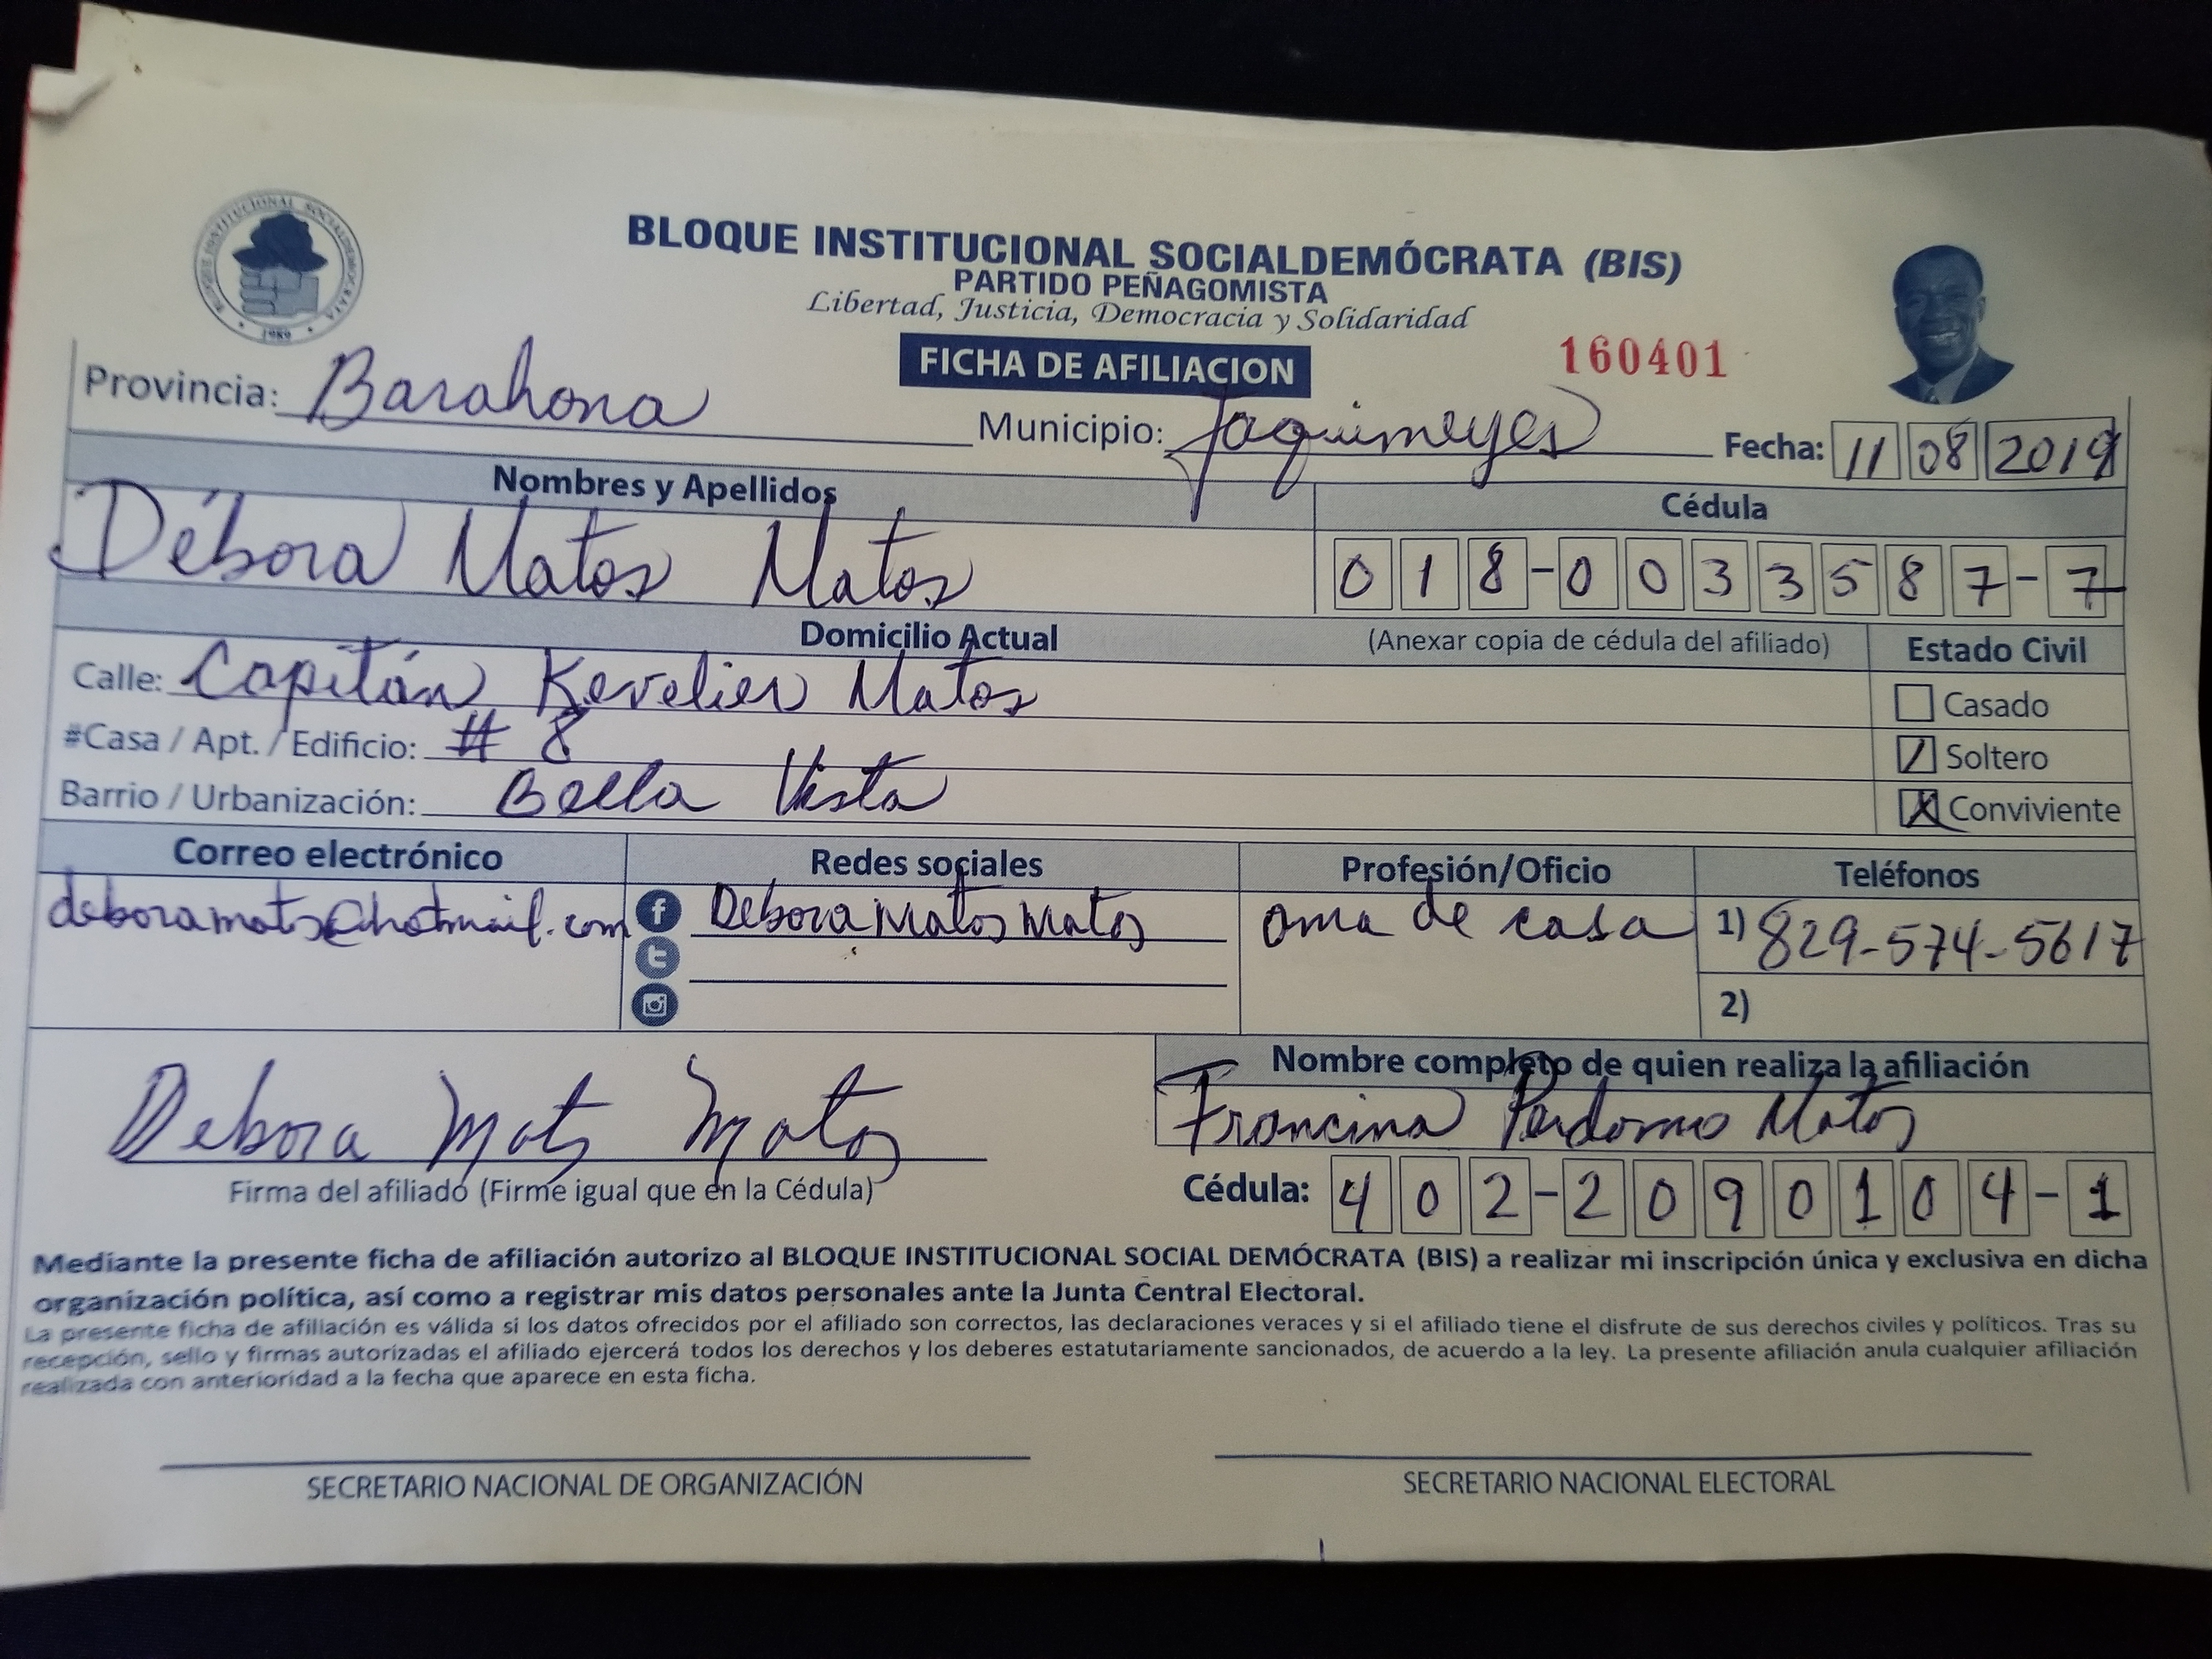 BLOQUE INSTITUCIONAL SOCIALDEMÓCRATA
1989
BLOQUE INSTITUCIONAL SOCIALDEMÓCRATA (BIS)
PARTIDO PEÑAGOMISTA
Libertad, Justicia, Democracia y Solidaridad
FICHA DE AFILIACION
160401
Provincia: Barahona Municipio: Jaquimeyes Fecha: 11 08 2019
Nombres y Apellidos Cédula
Débora Matos Matos 018-0033587-7
Domicilio Actual (Anexar copia de cédula del afiliado) Estado Civil
Calle: Capitán Kevelier Matos Casado
#Casa / Apt. / Edificio: # 8 Soltero
Barrio / Urbanización: Bella Vista Conviviente
Correo electrónico Redes sociales Profesión/Oficio Teléfonos
deboramatos@hotmail.com Debora Matos Matos ama de casa 1) 829-574-5617
2)
Debora Matos Matos
Firma del afiliado (Firme igual que en la Cédula)
Nombre completo de quien realiza la afiliación
Francina Perdomo Matos
Cédula: 402-2090104-1
Mediante la presente ficha de afiliación autorizo al BLOQUE INSTITUCIONAL SOCIAL DEMÓCRATA (BIS) a realizar mi inscripción única y exclusiva en dicha
organización política, así como a registrar mis datos personales ante la Junta Central Electoral.
La presente ficha de afiliación es válida si los datos ofrecidos por el afiliado son correctos, las declaraciones veraces y si el afiliado tiene el disfrute de sus derechos civiles y políticos. Tras su
recepción, sello y firmas autorizadas el afiliado ejercerá todos los derechos y los deberes estatutariamente sancionados, de acuerdo a la ley. La presente afiliación anula cualquier afiliación
realizada con anterioridad a la fecha que aparece en esta ficha.
SECRETARIO NACIONAL DE ORGANIZACIÓN SECRETARIO NACIONAL ELECTORAL